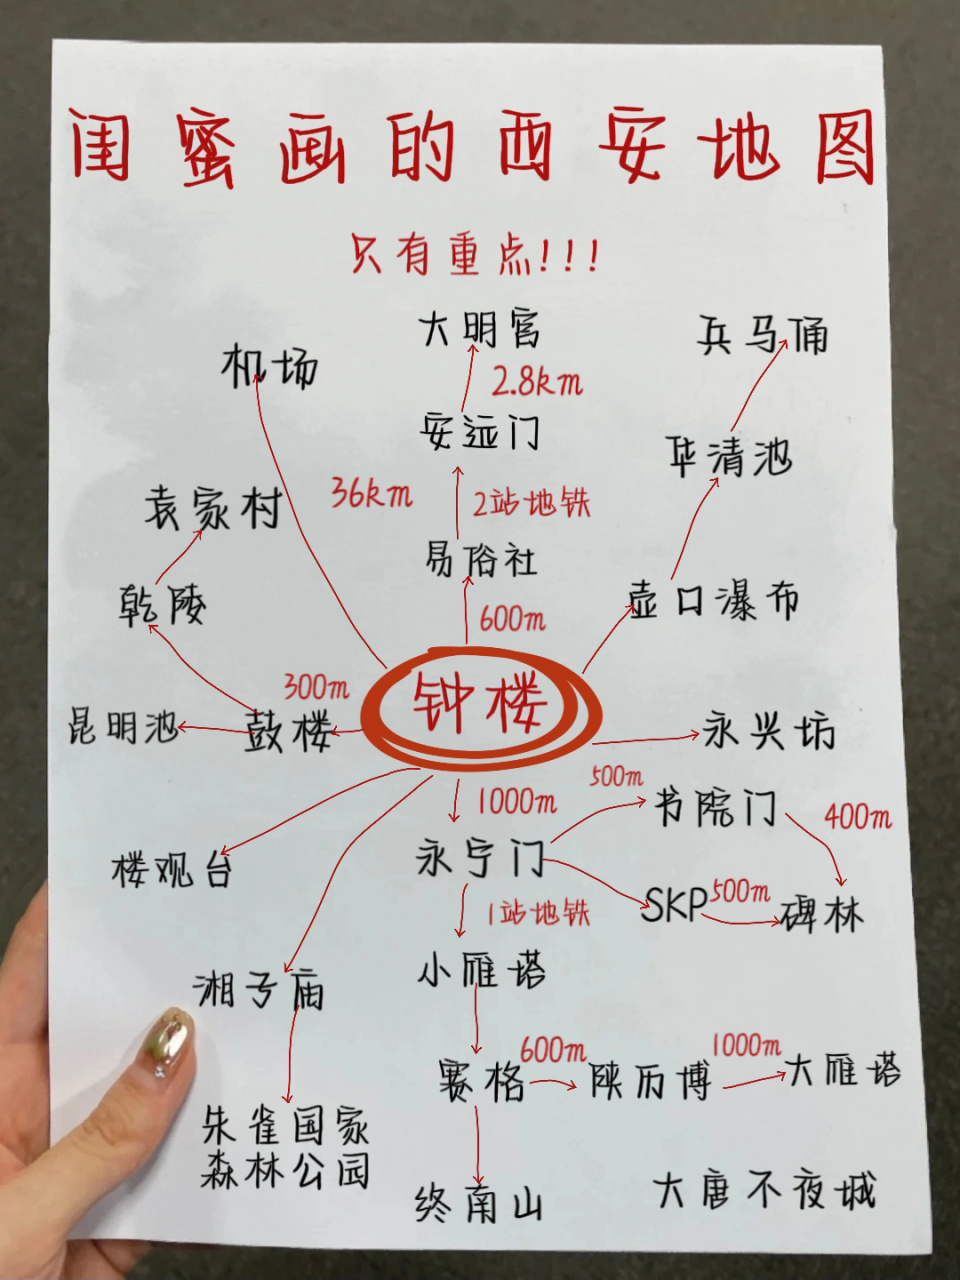 闺蜜画的西安地图
只有重点!!!
大明宫
兵马俑
机场
2.8km
安远门
华清池
袁家村
36km
2站地铁
易俗社
乾陵
600m
壶口瀑布
300m
钟楼
昆明池
鼓楼
永兴坊
500m
1000m
书院门
400m
楼观台
永宁门
SKP
500m
碑林
1站地铁
小雁塔
湘子庙
600m
1000m
赛格
陕历博
大雁塔
朱雀国家
森林公园
终南山
大唐不夜城